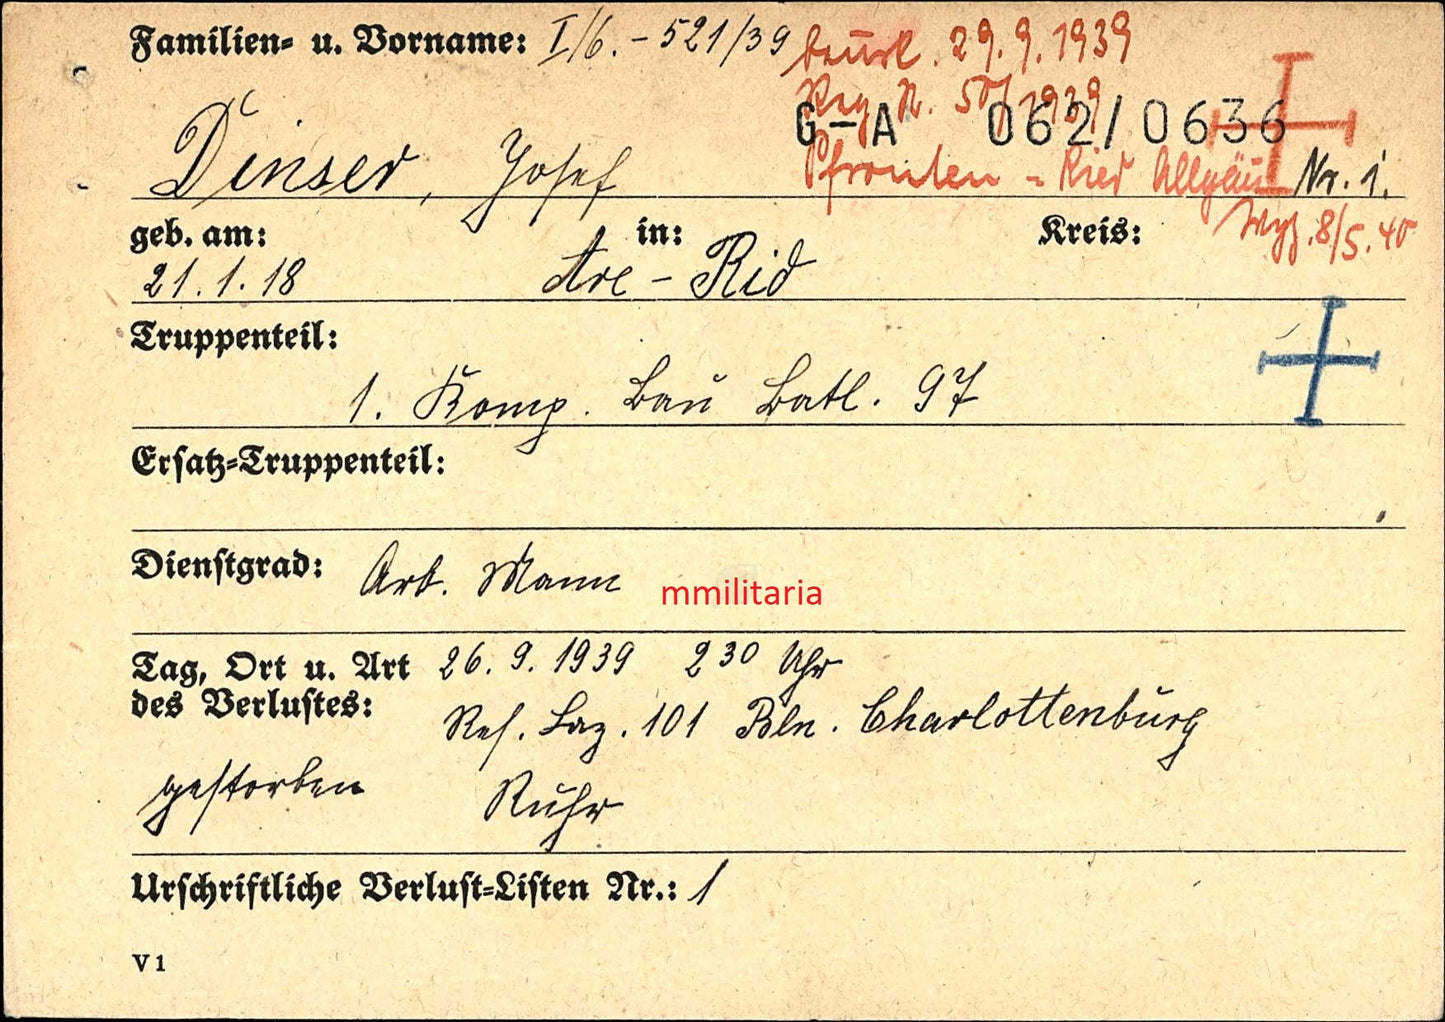 Familien- u. Vorname: I/6. - 521/39 beurk. 29.9.1939
Reg N. 50/1939
G-A 062/0636
Dinser, Josef
Pfronten - Ried Allgäu Nr. 1.
geb. am: in: Kreis: 8/5.40
21.1.18 - Rid
Truppenteil:
1. Komp. Bau Batl. 97
Ersatz-Truppenteil:
Dienstgrad: Arb. Mann
mmilitaria
Tag, Ort u. Art 26.9.1939 2 30 Uhr
des Verlustes:
Res. Laz. 101 Bln. Charlottenburg
gestorben Ruhr
Urschriftliche Verlust-Listen Nr.: 1
V 1